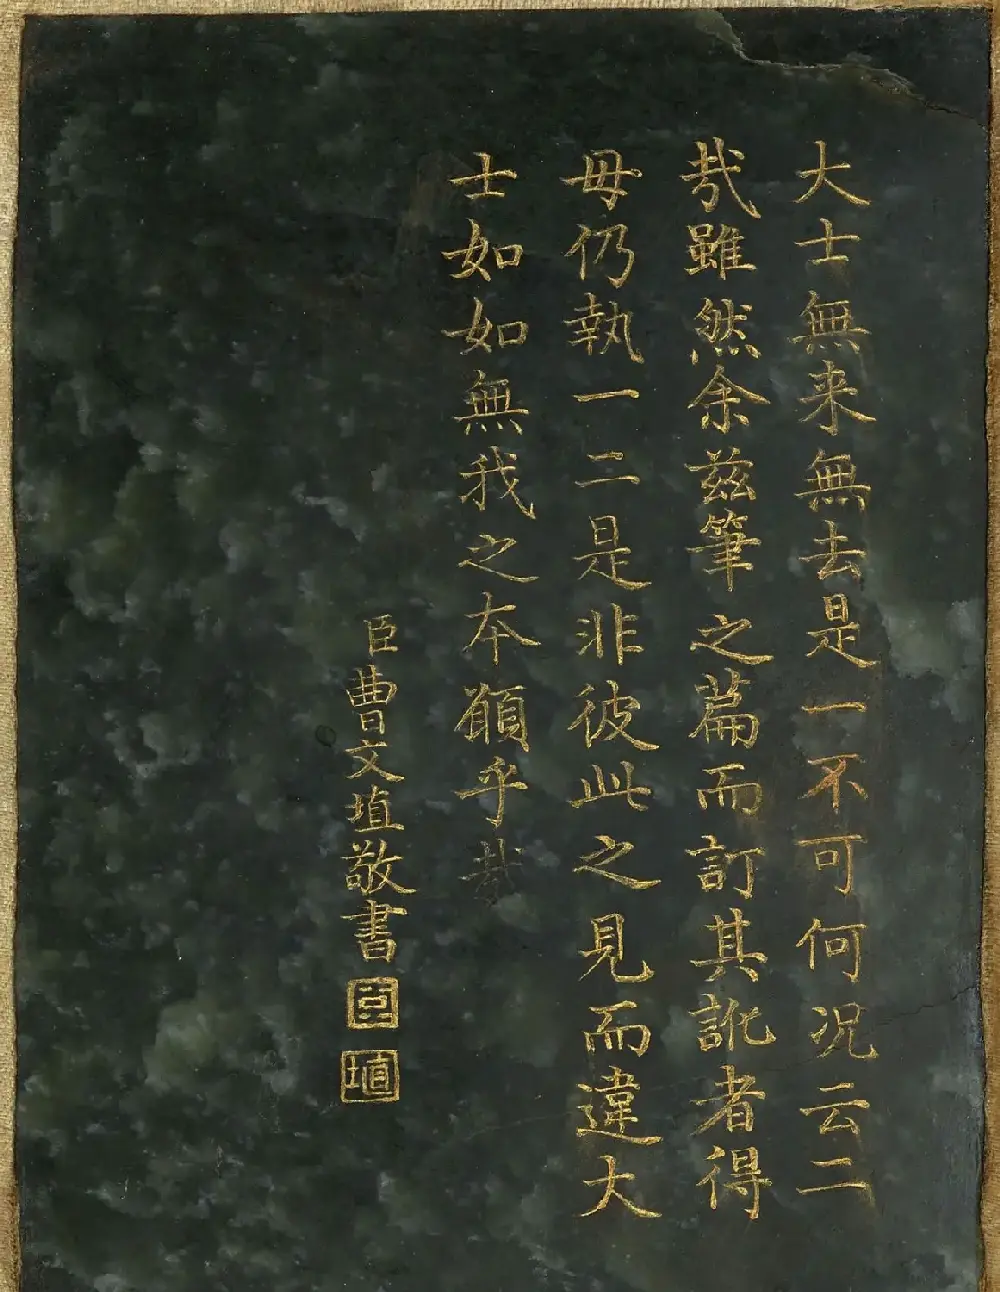 大士無来無去是一不可何況云二
哉雖然余兹筆之篇而訂其訛者得
毋仍執一二是非彼此之見而違大
士如如無我之本願乎哉
臣曹文埴敬書
臣
埴